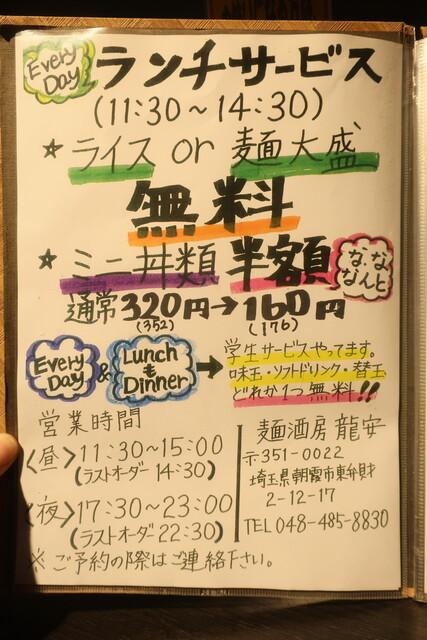 Every Day ランチサービス
(11:30～14:30)
★ライス or 麺大盛
無料
★ミニ丼類 半額 なななんと
通常320円→160円
(352) (176)
Every Day & Lunch も Dinner →
学生サービスやってます。
味玉・ソフトドリンク・替玉
どれか1つ無料!!
営業時間
〈昼〉11:30～15:00
(ラストオーダー 14:30)
〈夜〉17:30～23:00
(ラストオーダ 22:30)
※ ご予約の際はご連絡下さい。
麺酒房 龍安
〒351-0022
埼玉県朝霞市東弁財
2-12-17
TEL 048-485-8830